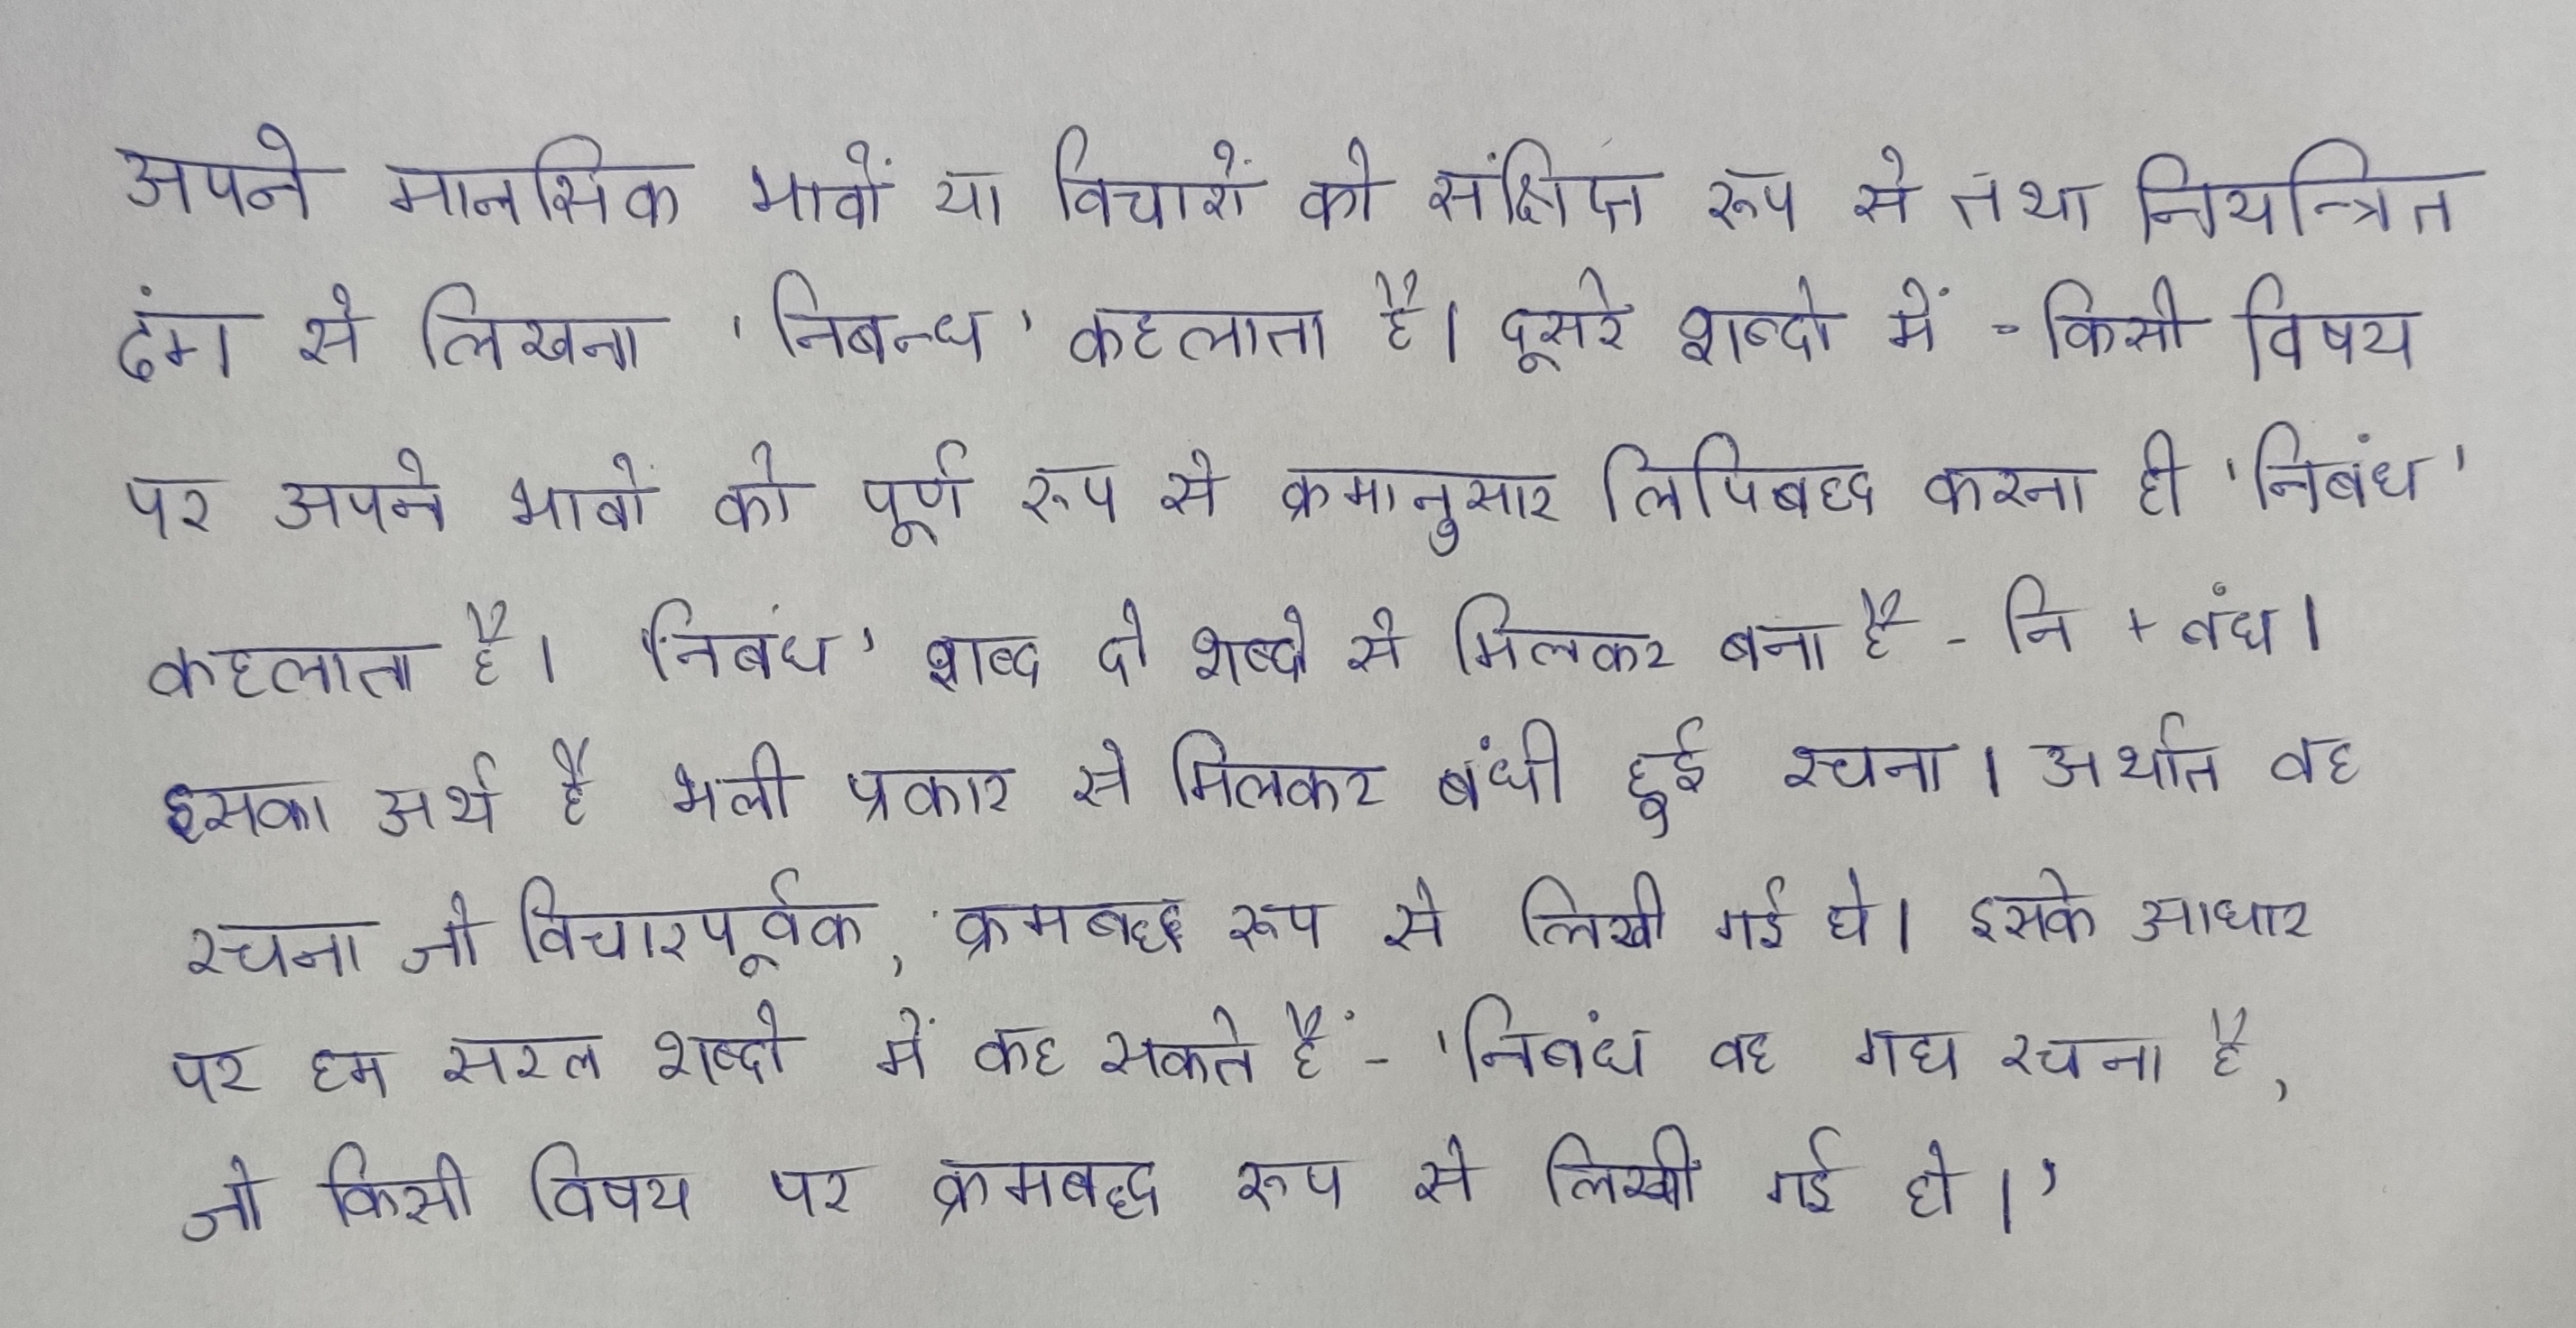 अपने मानसिक भावों या विचारों को संक्षिप्त रूप से तथा नियन्त्रित
ढंग से लिखना 'निबन्ध' कहलाता है। दूसरे शब्दो में - किसी विषय
पर अपने भावों को पूर्ण रूप से क्रमानुसार लिपिबद्ध करना ही 'निबंध'
कहलाता है। निबंध' शब्द दो शब्दो से मिलकर बना है - नि + बंध।
इसका अर्थ है भली प्रकार से मिलकर बंधी हुई रचना। अर्थात वह
रचना जो विचारपूर्वक, क्रमबद्ध रूप से लिखी गई हो। इसके आधार
पर हम सरल शब्दो में कह सकते हैं - 'निबंध वह गद्य रचना है,
जो किसी विषय पर क्रमबद्ध रूप से लिखी गई हो।'